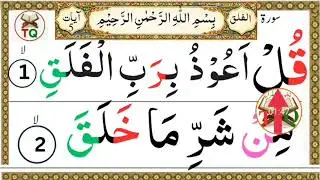 سورة الفلق بِسْمِ اللهِ الرَّحْمٰنِ الرَّحِيْمِ آیات TQ
قُلْ اَعُوْذُ بِرَبِّ الْفَلَقِ ۙ 1
مِنْ شَرِّ مَا خَلَقَ ۙ 2
TQ